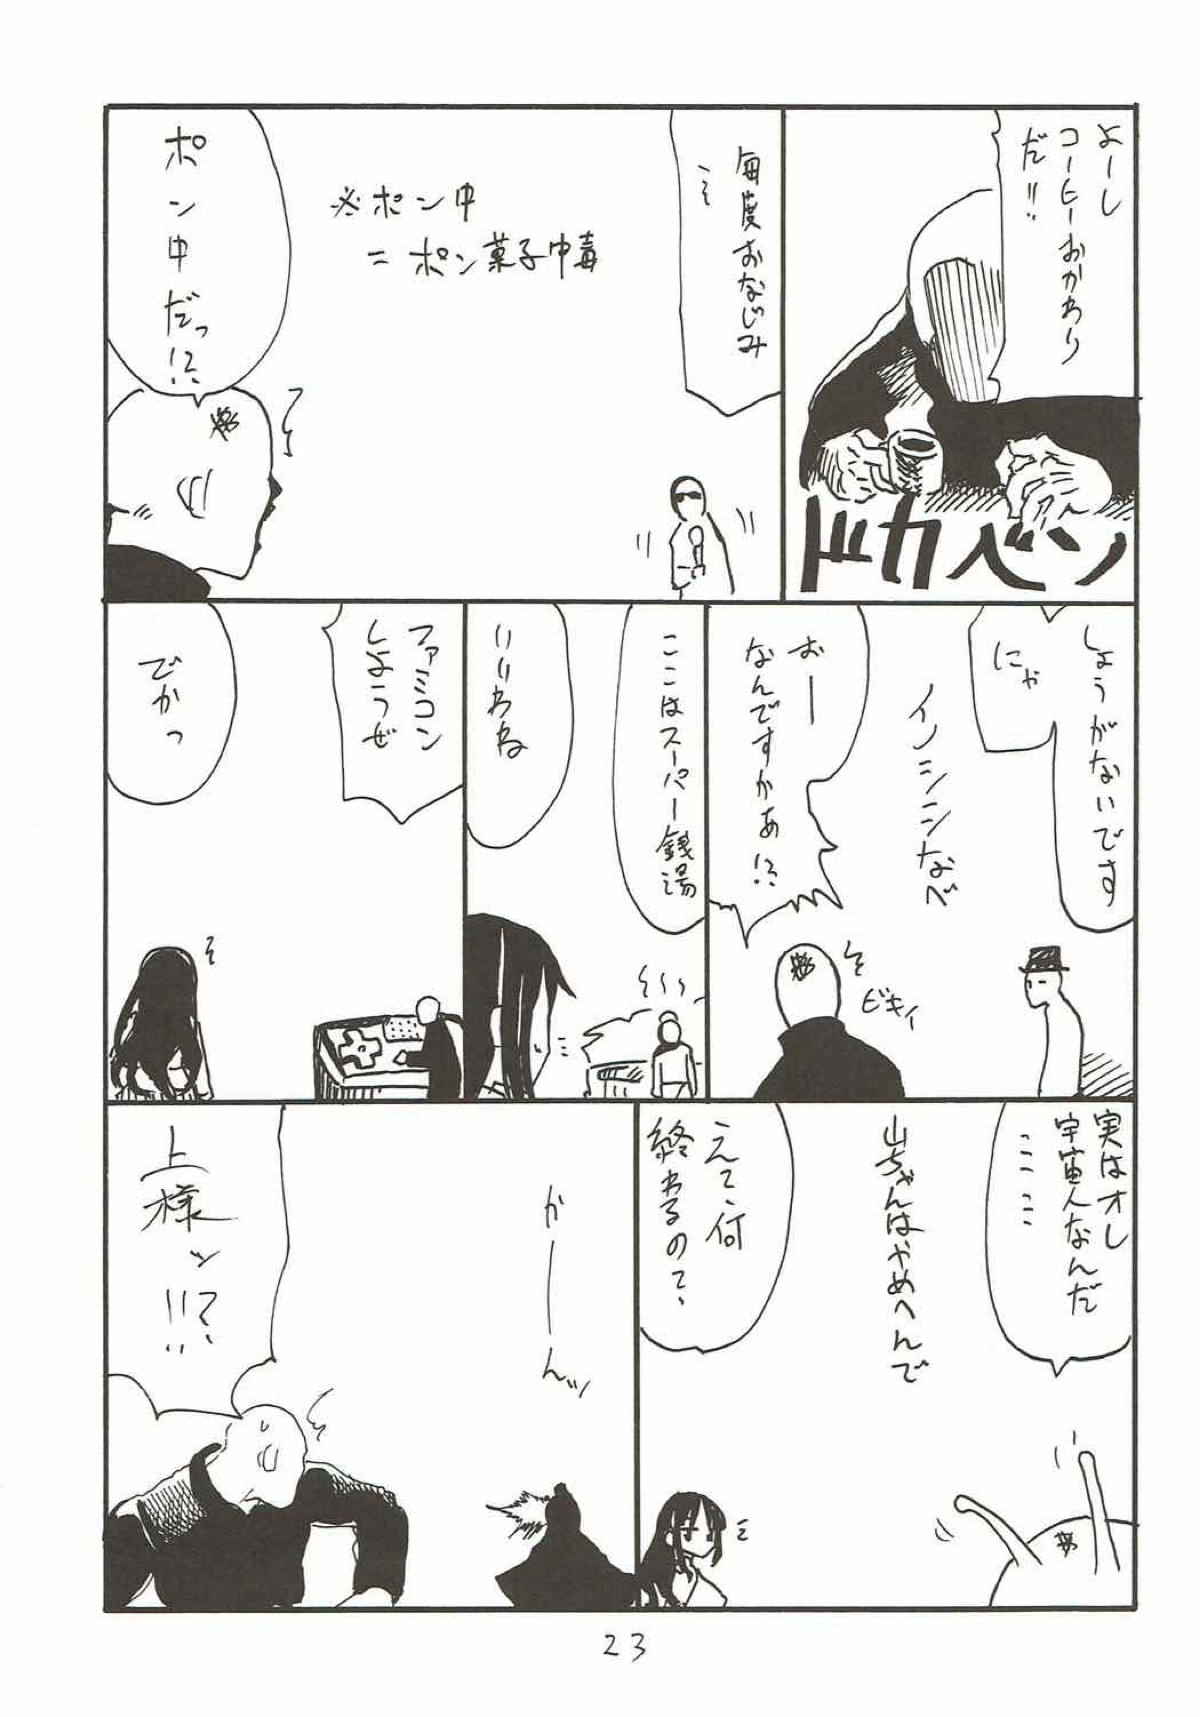 よーし
コーヒーおかわり
だ!!
ドカベン
毎度おなじみ
※ポン中
=ポン菓子中毒
ポン中だっ!?
しょうがないです
にゃ
イノシシなべ
おー
なんですかあ!?
ビキィ
ここはスーパー銭湯
いいわね
ファミコン
しようぜ
でかっ
実はオレ
宇宙人なんだ
山ちゃんはやめへんで
えて、何
終わるので、
がーーんッ
上様ッ!!?
23